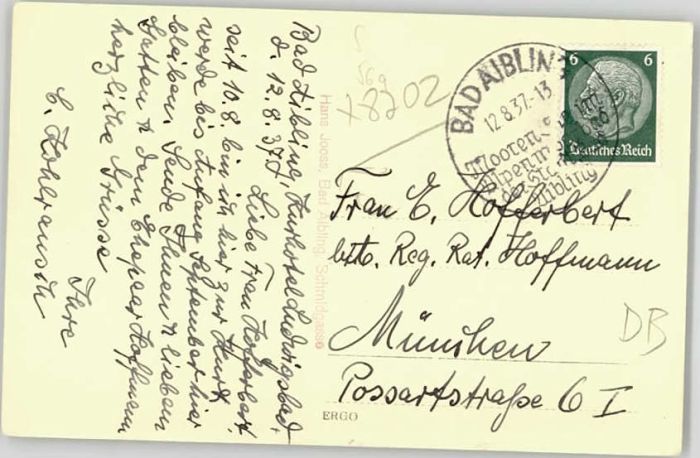 Bad Aibling, Kurhotel Ludwigsbad,
d. 12.8.37.
Liebe Frau Hofferbert,
seit 10.8 bin ich hier zur Kur &
werde bis Anfang September hier
bleiben. Sende Ihnen & lieben
Gatten & dem Ehepaar Hoffmann
herzliche Grüsse
Ihre
C. Kohlrausch
Hans Jooss, Bad Aibling, Schmidgasse
56g
+8702
BAD AIBLING
12.8.37.-13
Mooren
Alpen
Aibling
6 6
Deutsches Reich
Frau E. Hofferbert
Reg. Rat. Hoffmann
München
Possartstraße 6 I
DB
ERGO